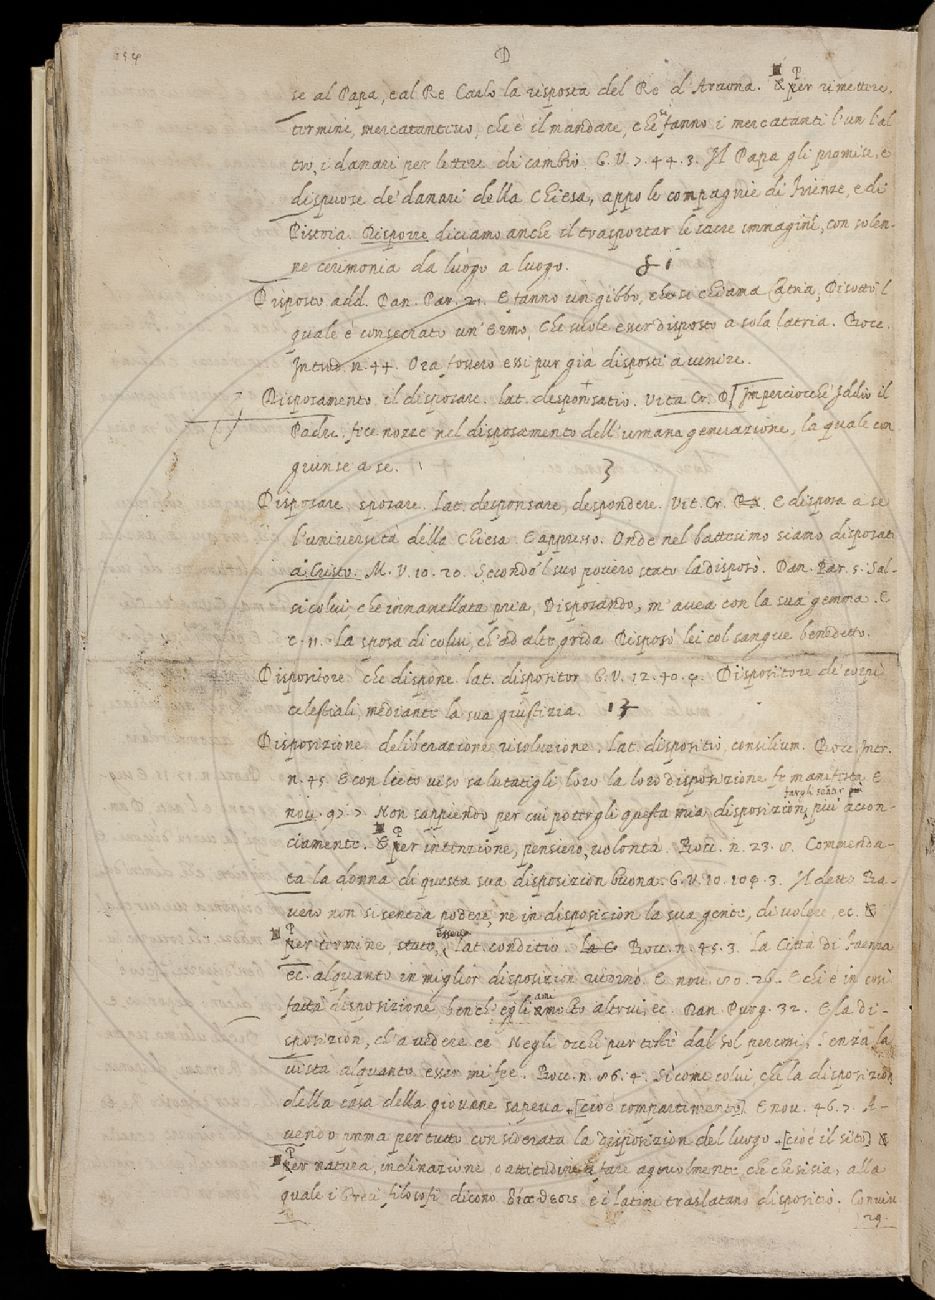 D
se al Papa, e al Re Carlo la risposta del Re d'Araona. ¶ per rimettere,
termine mercatantivo, che è il mandare, che fanno i mercatanti l'un l'al
tro, i danari per lettere di cambio G. V. 7. 44. 3. Il Papa gli promise, e
dispuose de' danari della Chiesa, appo le compagnie di Firenze, e di
Pistoia. Disporre diciamo anche il trasportar le sacre immagini, con solen-
ne cerimonia da luogo a luogo.
Disposto add. Dan. Par. 21. E fanno un gibbo, che si chiama Catria, Disotto 'l
quale è consecrato un' Ermo, Che suole esser disposto a sola latria. Bocc.
Introd. n. 44. Ora fossero essi pur già disposti a venire.
Disposamento il disposare. lat. desponsatio. Vita Cr. D Imperciocchè Iddio il
Padre fece nozze nel disposamento dell'umana generazione, la quale con
giunse a se. 3
Disposare sposare. lat. desponsare, despondere. Vit. Cr. E disposa a se
l'università della Chiesa E appresso. Onde nel battesimo siamo disposati
a Cristo. M. V. 10. 20. Secondo 'l suo povero stato la disposò. Dan. Par. 5. Sal-
si colui che innanellata pria, Disposando, m' avea con la sua gemma. E
c. 11. la sposa di colui, ch'ad alte grida Disposò lei col sangue benedetto.
Dispositore che dispone lat. dispositor G. V. 12. 40. 9. Dispositore de' corpi
celestiali, mediante la sua giustizia. 13
Disposizione deliberazione risoluzione. lat. dispositio, consilium. Bocc. Intr.
n. 45. E con lieto viso salutatigli loro la loro disposizione fe manifesta E
nov. 97. 7 Non sappiendo per cui potergli questa mia disposizion fargli sentir più accon-
ciamente. ¶ per intenzione, pensiero, volontà. Bocc. n. 23. 8. Commenda-
ta la donna di questa sua disposizion buona. G. V. 10. 109. 3. Il detto Ra-
vero non si sentia podere, nè in disposizion la sua gente, di volere, ec.
¶ per termine, stato, essere lat. conditio. Bocc. n. 45. 3. la Città di Faenza
ec. alquanto in miglior disposizion ritornò. E nov. 80. 26. E chi è in così
fatta disposizione benchè egli ami molto altrui, ec. Dan. Purg. 32. E la di-
sposizion, ch'a vedere ee Negli occhi pur testè dal Sol percossi, Senza la
vista alquanto esser mi fee. Bocc. n. 86. 4. Sì come colui, che la disposizion
della casa della giovane sapeva [cioè compartimento] E nov. 46. 7. A-
vendo imma per tutto considerata la disposizion del luogo [cioè il sito]
¶ per natura, inclinazione o attitudine a fare agevolmente che che si sia, alla
quale i Greci filosofi dicono διάθεσις e i latini traslatano dispositio. Convien
29.